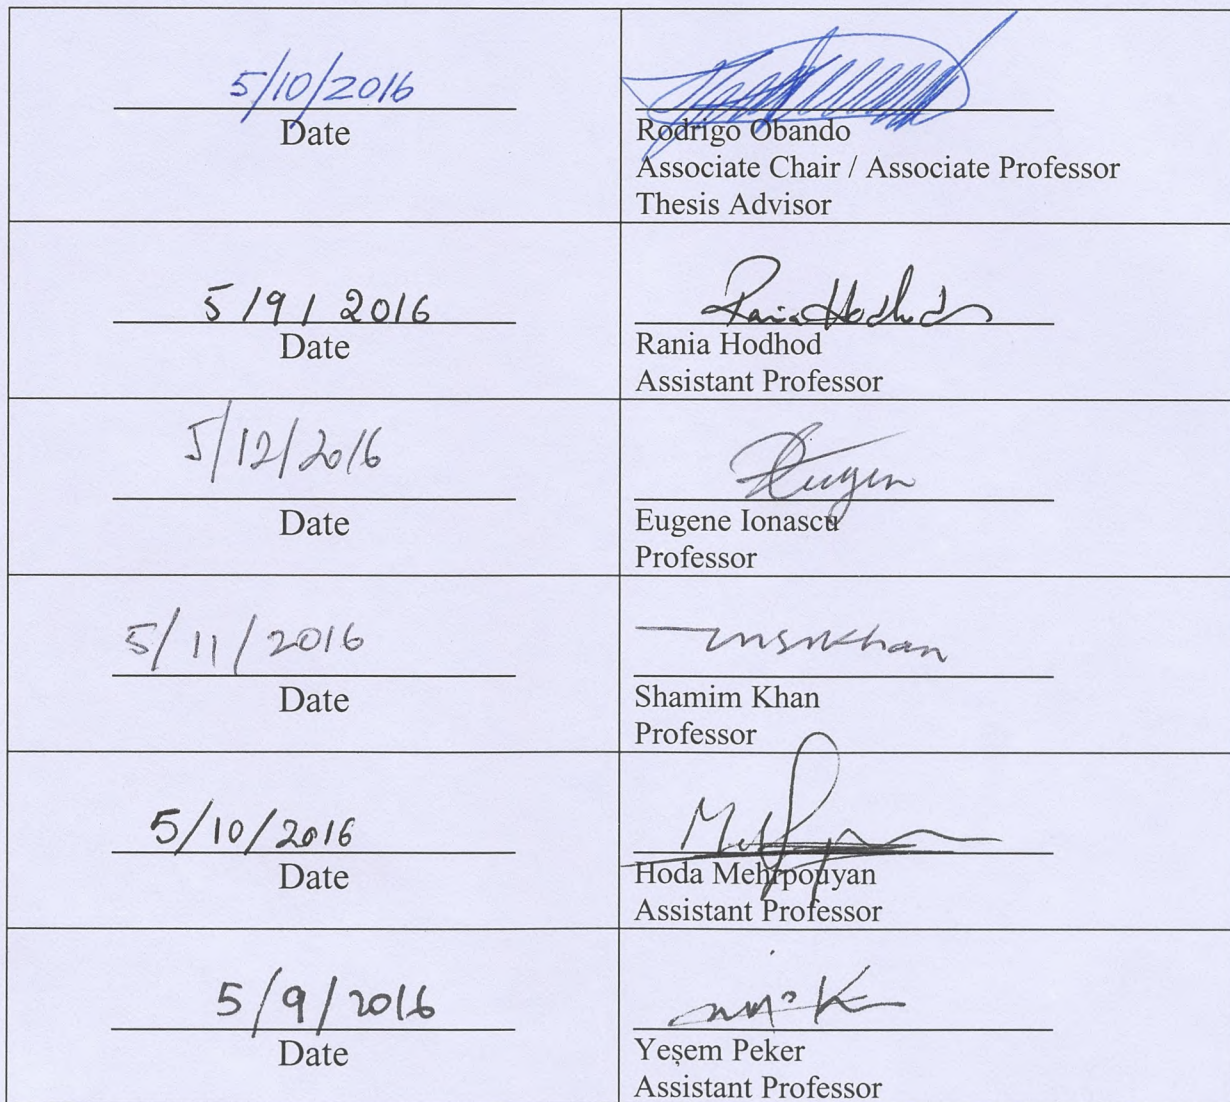 5/10/2016
Date
Rodrigo Obando
Associate Chair / Associate Professor
Thesis Advisor
5/9/2016
Date
Rania Hodhod
Rania Hodhod
Assistant Professor
5/12/2016
Date
Eugen
Eugene Ionascu
Professor
5/11/2016
Date
Shamim Khan
Professor
5/10/2016
Date
Hoda Mehrpouyan
Assistant Professor
5/9/2016
Date
Yeşem Peker
Assistant Professor